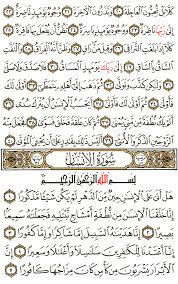 كَلَّا بَلْ تُحِبُّونَ ٱلْعَاجِلَةَ ٢٠ وَتَذَرُونَ ٱلْءَاخِرَةَ ٢١ وُجُوهٌ يَوْمَئِذٍ نَّاضِرَةٌ ٢٢
إِلَىٰ رَبِّهَا نَاظِرَةٌ ٢٣ وَوُجُوهٌ يَوْمَئِذٍۭ بَاسِرَةٌ ٢٤ تَظُنُّ أَن يُفْعَلَ بِهَا فَاقِرَةٌ
٢٥ كَلَّآ إِذَا بَلَغَتِ ٱلتَّرَاقِيَ ٢٦ وَقِيلَ مَنْ رَاقٍ ٢٧ وَظَنَّ أَنَّهُ ٱلْفِرَاقُ ٢٨
وَٱلْتَفَّتِ ٱلسَّاقُ بِٱلسَّاقِ ٢٩ إِلَىٰ رَبِّكَ يَوْمَئِذٍ ٱلْمَسَاقُ ٣٠ فَلَا صَدَّقَ وَلَا صَلَّىٰ
٣١ وَلَٰكِن كَذَّبَ وَتَوَلَّىٰ ٣٢ ثُمَّ ذَهَبَ إِلَىٰٓ أَهْلِهِۦ يَتَمَطَّىٰٓ ٣٣ أَوْلَىٰ لَكَ فَأَوْلَىٰ
٣٤ ثُمَّ أَوْلَىٰ لَكَ فَأَوْلَىٰٓ ٣٥ أَيَحْسَبُ ٱلْإِنسَٰنُ أَن يُتْرَكَ سُدًى ٣٦ أَلَمْ يَكُ
نُطْفَةً مِّن مَّنِىٍّ يُمْنَىٰ ٣٧ ثُمَّ كَانَ عَلَقَةً فَخَلَقَ فَسَوَّىٰ ٣٨ فَجَعَلَ مِنْهُ
ٱلزَّوْجَيْنِ ٱلذَّكَرَ وَٱلْأُنثَىٰٓ ٣٩ أَلَيْسَ ذَٰلِكَ بِقَٰدِرٍ عَلَىٰٓ أَن يُحْـِۧىَ ٱلْمَوْتَىٰ ٤٠
سُورَةُ الإِنْسَانِ
بِسْمِ ٱللَّهِ ٱلرَّحْمَٰنِ ٱلرَّحِيمِ
هَلْ أَتَىٰ عَلَى ٱلْإِنسَٰنِ حِينٌ مِّنَ ٱلدَّهْرِ لَمْ يَكُن شَيْـًٔا مَّذْكُورًا ١
إِنَّا خَلَقْنَا ٱلْإِنسَٰنَ مِن نُّطْفَةٍ أَمْشَاجٍ نَّبْتَلِيهِ فَجَعَلْنَٰهُ سَمِيعًۢا
بَصِيرًا ٢ إِنَّا هَدَيْنَٰهُ ٱلسَّبِيلَ إِمَّا شَاكِرًا وَإِمَّا كَفُورًا ٣
إِنَّآ أَعْتَدْنَا لِلْكَٰفِرِينَ سَلَٰسِلَا۟ وَأَغْلَٰلًا وَسَعِيرًا ٤ إِنَّ
ٱلْأَبْرَارَ يَشْرَبُونَ مِن كَأْسٍ كَانَ مِزَاجُهَا كَافُورًا ٥